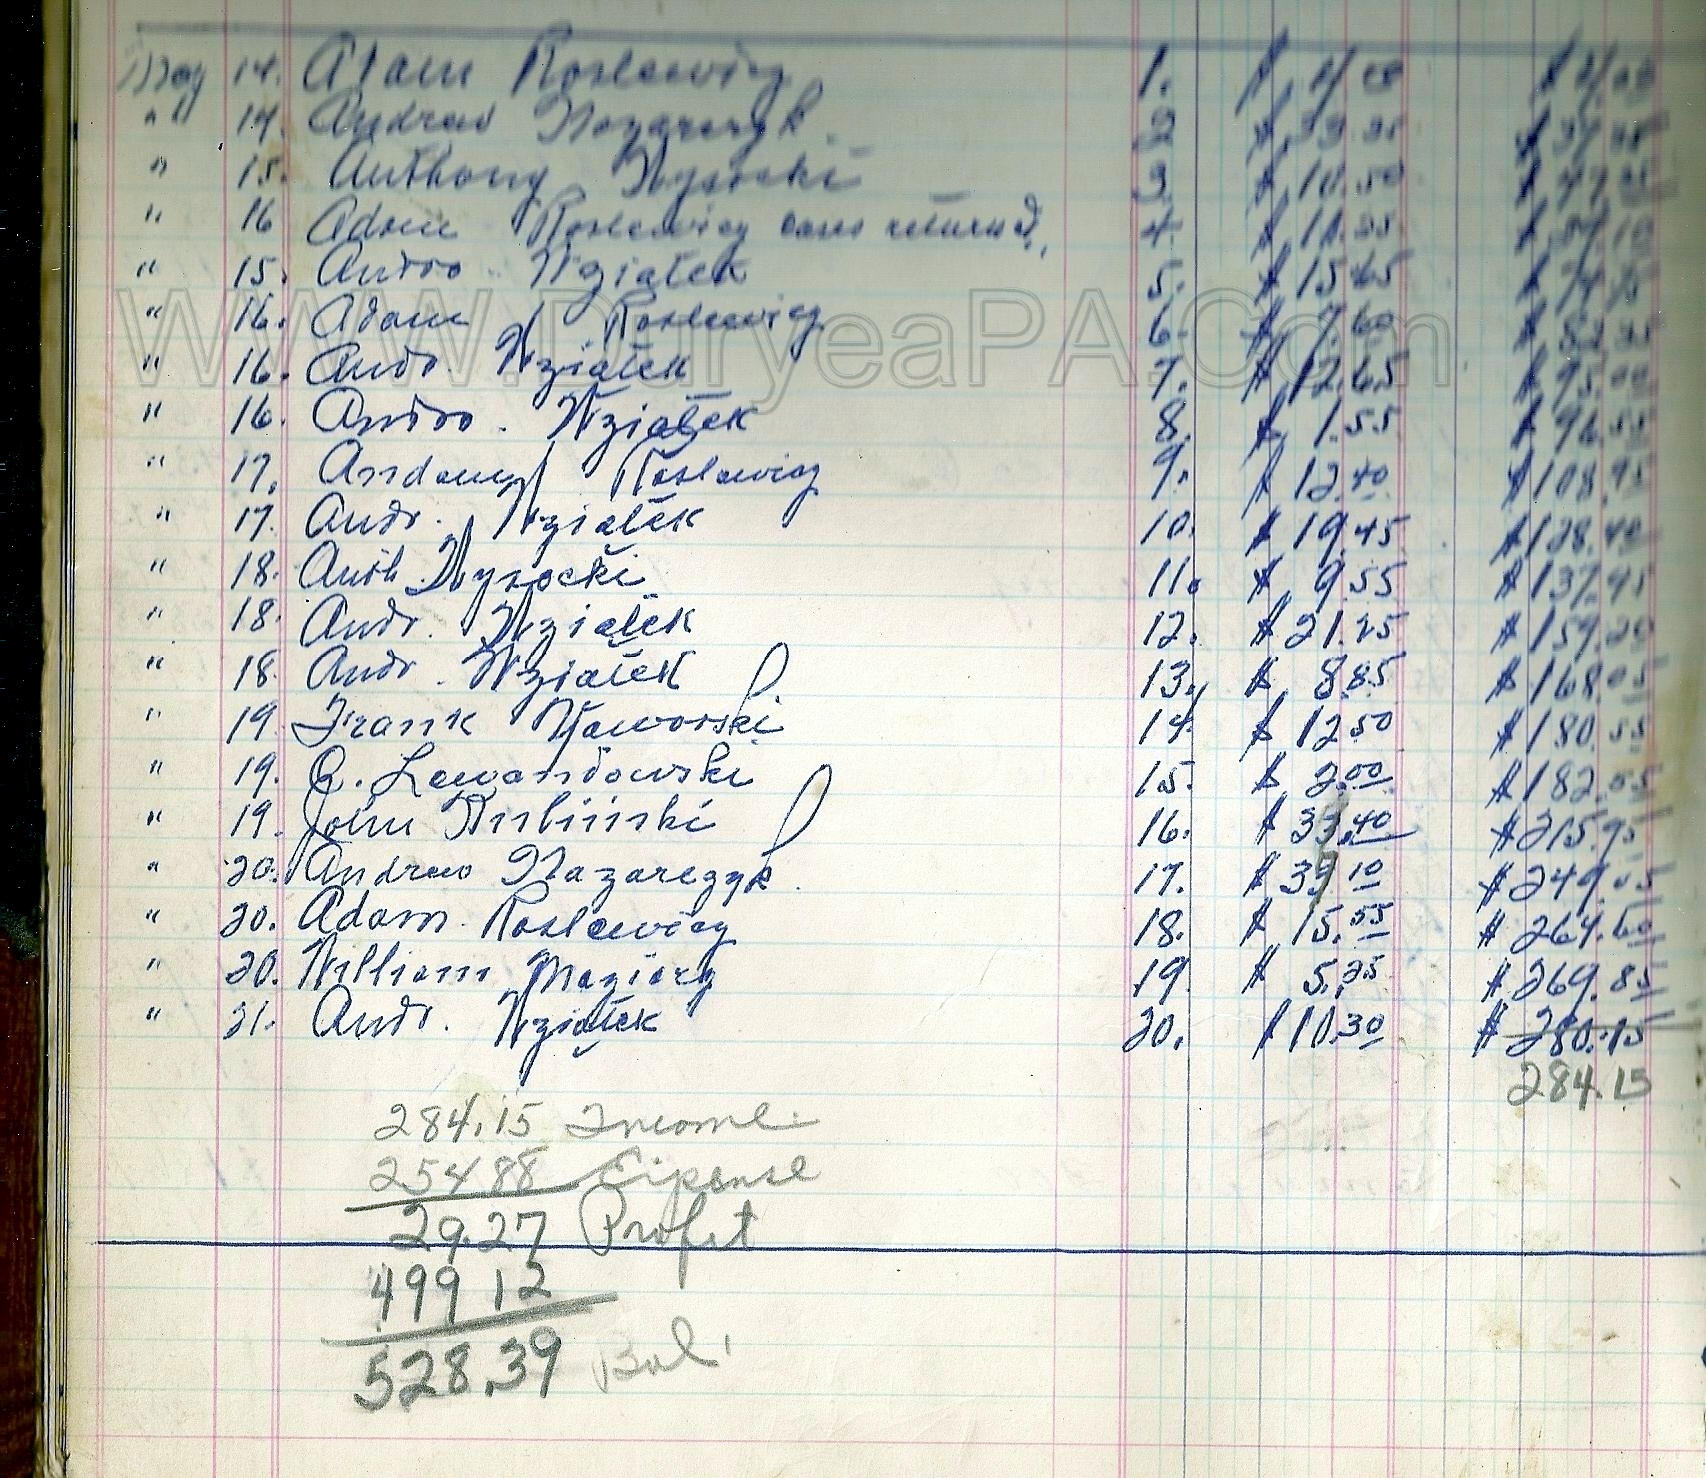 May 14. Adam Roslewicz 1. $ 4.00 $ 4.00
" " 14. Andrew Nazarczyk. 2 $ 33.35 $ 37.35
" 15. Anthony Wysocki 3 $ 10.50 $ 47.85
" 16 Adam Roslewicz returned. 4 $ 11.25 $ 59.10
" 15. Andro. Wziatek 5. $ 15.65 $ 74.75
" 16. Adam Roslewicz 6. $ 7.60 $ 82.35
" 16. Andr. Wziatek 7. $ 12.65 $ 95.00
" 16. Andro. Wziatek 8. $ 1.55 $ 96.55
" 17. Andam Roslewicz 9. $ 12.40 $ 108.95
" 17. Andr. Wziatek 10. $ 19.45 $ 128.40
" 18. Anth. Wysocki 11. $ 9.55 $ 137.95
" 18. Andr. Wziatek 12. $ 21.25 $ 159.20
" 18. Andr. Wziatek 13. $ 8.85 $ 168.05
" 19 Frank Naworski 14. $ 12.50 $ 180.55
" 19. Lewandowski 15. $ 2.00 $ 182.55
" 19. John Rubinski 16. $ 33.40 $ 215.95
" 20. Andrew Nazarczyk. 17. $ .10 $ 249.05
" 20. Adam. Roslewicz 18. $ 15.55 $ 264.60
" 20. William Maziarz 19. $ 5.25 $ 269.85
" 21. Andr. Wziatek 20. $ 10.30 $ 280.15
284.15
284.15 Income
254 88 Expense
29.27 Profit
499 12
528.39 Bal.
WWW.DuryeaPA.Com